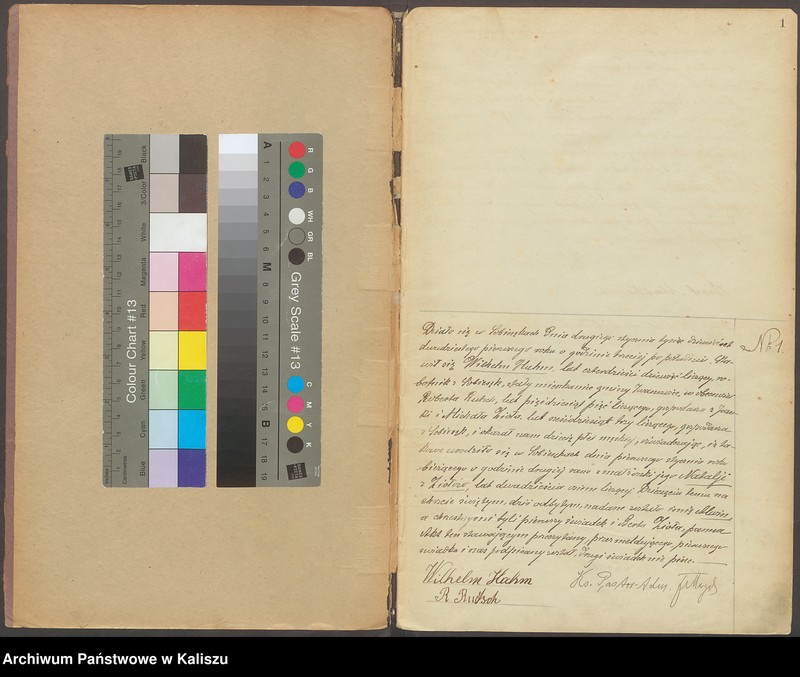 Colour Chart #13
Blue
Cyan
Green
Yellow
Red
Magenta
White
3/Color
Black
Grey Scale #13
A 1 2 3 4 5 6 M 8 9 10 11 12 13 14 15 B 17 18 19
R
G
B
WH
GR
BL
C
M
Y
K
1
№ 1
Działo się w Sobiesękach dnia drugiego stycznia tysiąc dziewięćset
dwudziestego pierwszego roku o godzinie trzeciej po południu. Sta-
wił się Wilhelm Hahm, lat czterdzieści dziewięć liczący, ro-
botnik z stały mieszkaniec gminy Iwanowice, w obecności
Roberta lat pięćdziesiąt pięć liczącego, gospodarza z
i Michała Zioła, lat sześćdziesiąt trzy liczącego, gospodarza
z i okazał nam dziecię płci męskiej, oświadczając, iż ta-
kowe urodziło się w Sobiesękach dnia pierwszego stycznia roku
bieżącego o godzinie drugiej rano z małżonki jego Natalji
z Ziołów, lat dwadzieścia osiem liczącej. Dziecięciu temu na
chrzcie świętym, dziś odbytym, nadane zostało imię
a chrzestnymi byli pierwszy świadek i Berta Zioła, panna
Akt ten stawającym przeczytany, przez meldującego, pierwszego
świadka i nas podpisany został, drugi świadek nie pisze.
Wilhelm Hahm
R. Rutsch
Ks. Pastor-Adm.
Archiwum Państwowe w Kaliszu